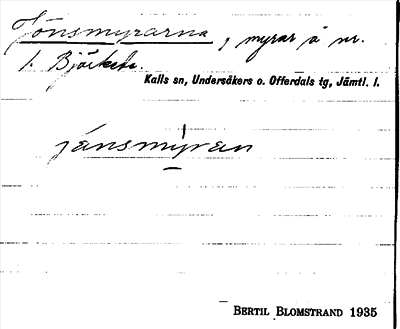 Jönsmyrarna, myrar å nr.
1. Björkede.
Kalls sn, Undersåkers o. Offerdals tg, Jämtl. l.
jånsmyran
BERTIL BLOMSTRAND 1935